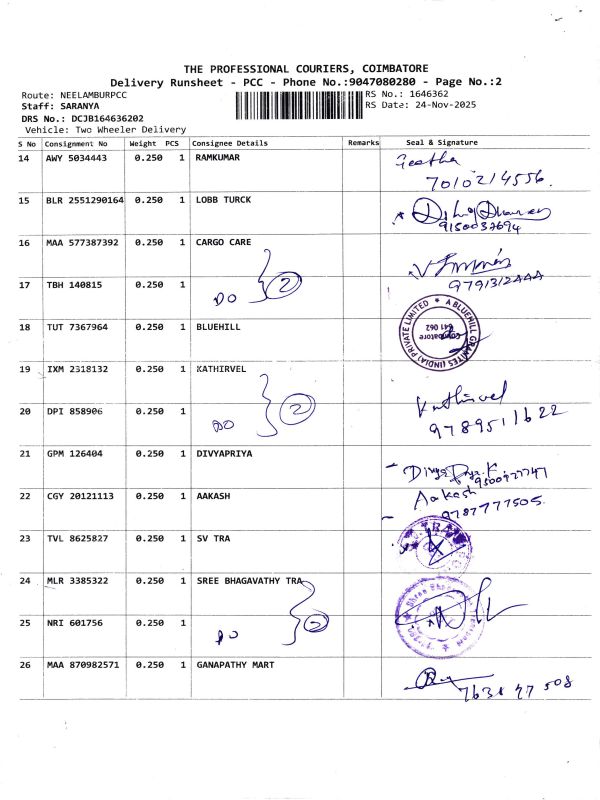 THE PROFESSIONAL COURIERS, COIMBATORE
Delivery Runsheet - PCC - Phone No.:9047080280 - Page No.:2
Route: NEELAMBURPCC RS No.: 1646362
Staff: SARANYA RS Date: 24-Nov-2025
DRS No.: DCJB164636202
Vehicle: Two Wheeler Delivery
S No Consignment No Weight PCS Consignee Details Remarks Seal & Signature
14 AWY 5034443 0.250 1 RAMKUMAR Geetha
7010214556.
15 BLR 2551290164 0.250 1 LOBB TURCK
9150037694
16 MAA 577387392 0.250 1 CARGO CARE
17 TBH 140815 0.250 1
DO 2
18 TUT 7367964 0.250 1 BLUEHILL
A BLUEHILL GRANITES (INDIA) PRIVATE LIMITED
Coimbatore
641 062
19 IXM 2318132 0.250 1 KATHIRVEL Kathirvel
20 DPI 858906 0.250 1 9789511622
DO 2
21 GPM 126404 0.250 1 DIVYAPRIYA
22 CGY 20121113 0.250 1 AAKASH Aakash
9787777505.
23 TVL 8625827 0.250 1 SV TRA
24 MLR 3385322 0.250 1 SREE BHAGAVATHY TRA
25 NRI 601756 0.250 1
DO 2
26 MAA 870982571 0.250 1 GANAPATHY MART